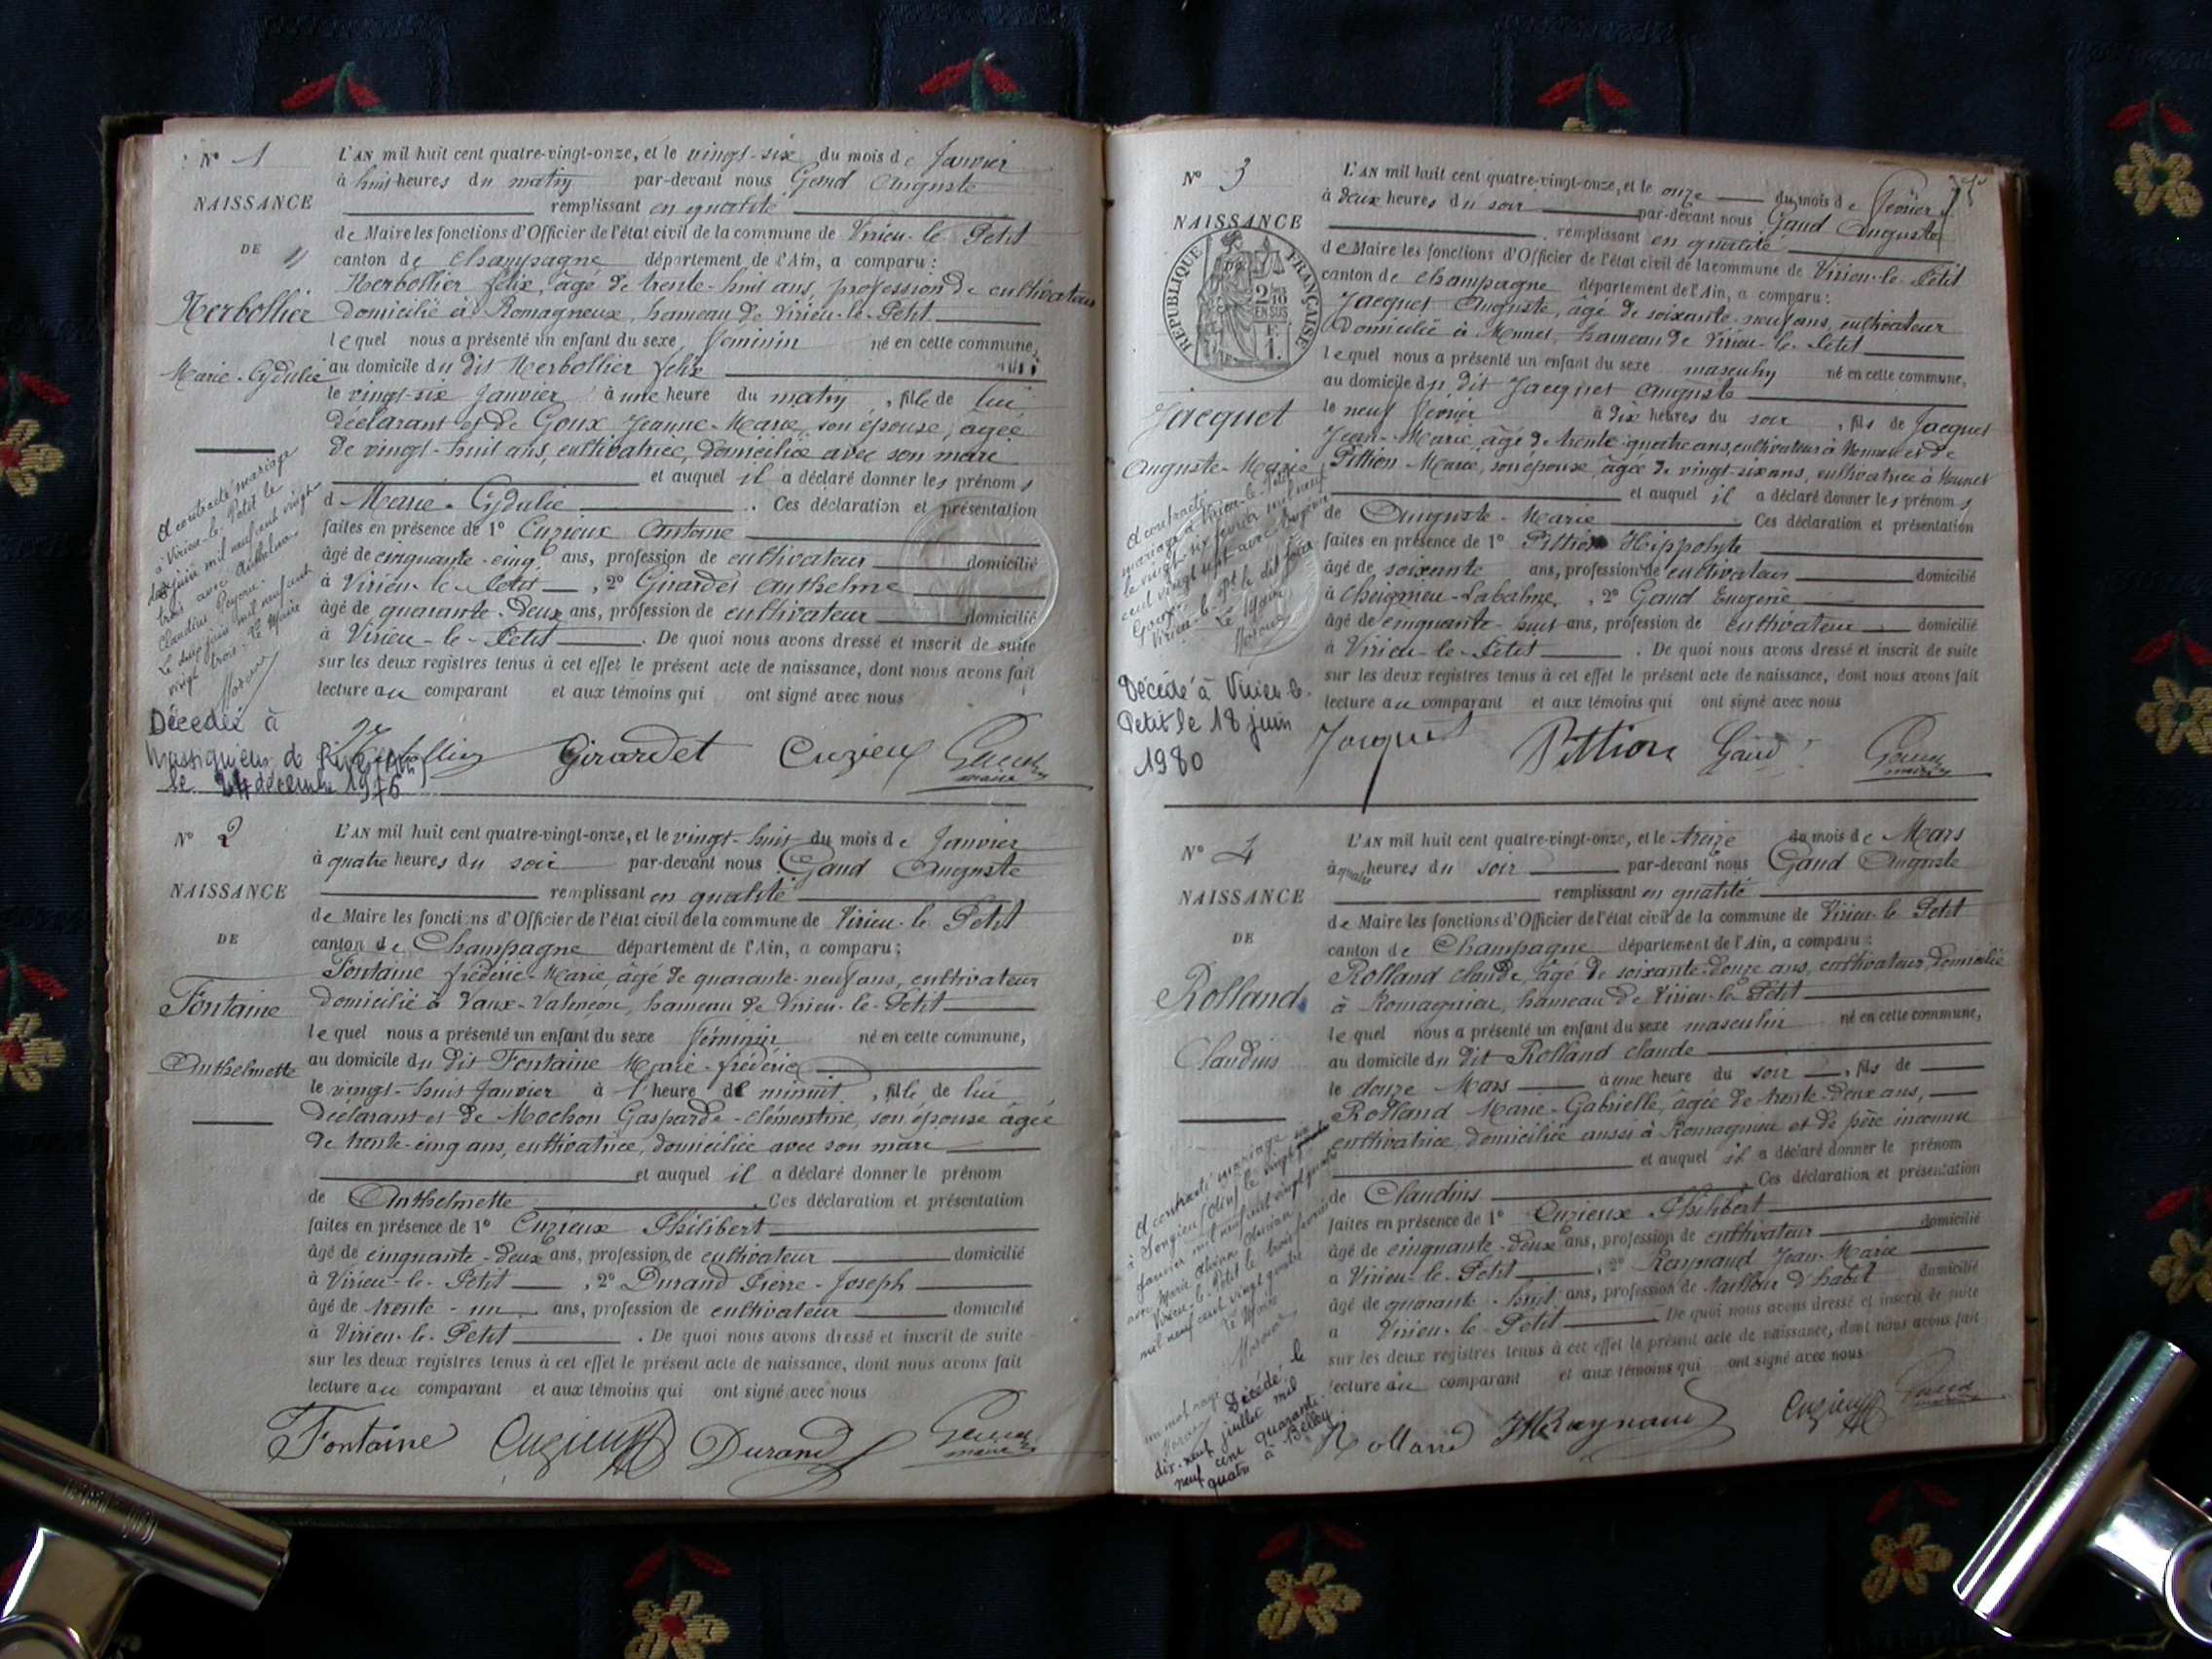 N° 1
NAISSANCE
DE
Herbollier
Marie-Cydulie
L'AN mil huit cent quatre-vingt-onze, et le vingt-six du mois de Janvier
à huit heures du matin par-devant nous Gaud Auguste
remplissant en qualité
de Maire les fonctions d'Officier de l'état civil de la commune de Virieu-le-Petit
canton de Champagne département de l'Ain, a comparu :
Herbollier félix, âgé de trente-huit ans, profession de cultivateur
domicilié à Romagneux, hameau de Virieu-le-Petit
lequel nous a présenté un enfant du sexe féminin né en cette commune,
au domicile du dit Herbollier félix
le vingt-six Janvier à une heure du matin, fille de lui
déclarant et de Goux Jeanne-Marie, son épouse, âgée
de vingt-huit ans, cultivatrice, domiciliée avec son mari
et auquel il a déclaré donner les prénoms
d Marie-Cydulie. Ces déclaration et présentation
faites en présence de 1° Cuzieux Antoine
âgé de cinquante-cinq ans, profession de cultivateur domicilié
à Virieu-le-Petit, 2° Girardet Anthelme
âgé de quarante-deux ans, profession de cultivateur domicilié
à Virieu-le-Petit. De quoi nous avons dressé et inscrit de suite
sur les deux registres tenus à cet effet le présent acte de naissance, dont nous avons fait
lecture au comparant et aux témoins qui ont signé avec nous
A contracté mariage
à Virieu-le-Petit le
juin mil neuf cent vingt-
trois avec Anthelme
Claudius
Le juin mil neuf cent
vingt trois. Le Maire
Décédée à
Massignieu de Rives (Ain)
le 24 décembre 1976
Herbollier Girardet Cuzieux Gaud
maire
N° 2
NAISSANCE
DE
Fontaine
Anthelmette
L'AN mil huit cent quatre-vingt-onze, et le vingt-huit du mois de Janvier
à quatre heures du soir par-devant nous Gaud Auguste
remplissant en qualité
de Maire les fonctions d'Officier de l'état civil de la commune de Virieu-le-Petit
canton de Champagne département de l'Ain, a comparu :
Fontaine frédéric-Marie, âgé de quarante-neuf ans, cultivateur
domicilié à Vaux-Valencon, hameau de Virieu-le-Petit
lequel nous a présenté un enfant du sexe féminin né en cette commune,
au domicile du dit Fontaine Marie-frédéric
le vingt-huit Janvier à l'heure de minuit, fille de lui
déclarant et de Mochon Gasparde-Clémentine, son épouse âgée
de trente-cinq ans, cultivatrice, domiciliée avec son mari
et auquel il a déclaré donner le prénom
de Anthelmette. Ces déclaration et présentation
faites en présence de 1° Cuzieux Philibert
âgé de cinquante-deux ans, profession de cultivateur domicilié
à Virieu-le-Petit, 2° Durand Pierre-Joseph
âgé de trente-un ans, profession de cultivateur domicilié
à Virieu-le-Petit. De quoi nous avons dressé et inscrit de suite
sur les deux registres tenus à cet effet le présent acte de naissance, dont nous avons fait
lecture au comparant et aux témoins qui ont signé avec nous
Fontaine Cuzieux Durand Gaud
maire
N° 3
NAISSANCE
RÉPUBLIQUE FRANÇAISE
2/10 EN SUS
F. 1.
Jacquet
Auguste-Marie
L'AN mil huit cent quatre-vingt-onze, et le onze du mois de février
à deux heures du soir par-devant nous Gaud Auguste
remplissant en qualité
de Maire les fonctions d'Officier de l'état civil de la commune de Virieu-le-Petit
canton de Champagne département de l'Ain, a comparu :
Jacquet Auguste, âgé de soixante-neuf ans, cultivateur
domicilié à Munet, hameau de Virieu-le-Petit
lequel nous a présenté un enfant du sexe masculin né en cette commune,
au domicile du dit Jacquet Auguste
le neuf février à dix heures du soir, fils de Jacquet
Jean-Marie, âgé de trente-quatre ans, cultivateur à Munet et de
Pittion Marie, son épouse, âgée de vingt-six ans, cultivatrice à Munet
et auquel il a déclaré donner les prénoms
de Auguste-Marie Ces déclaration et présentation
faites en présence de 1° Pittion Hippolyte
âgé de soixante ans, profession de cultivateur domicilié
à Cheignieu-Labalme, 2° Gaud Eugène
âgé de cinquante-huit ans, profession de cultivateur domicilié
à Virieu-le-Petit. De quoi nous avons dressé et inscrit de suite
sur les deux registres tenus à cet effet le présent acte de naissance, dont nous avons fait
lecture au comparant et aux témoins qui ont signé avec nous
A contracté
mariage à Virieu-le-Petit
le vingt-six février mil neuf
cent vingt sept avec Eugénie
Goux
Virieu-le-Ptt le dit jour
Le Maire
Décédé à Virieu-le-
Petit le 18 juin
1980
Jacquet Pittion Gaud Gaud
maire
N° 4
NAISSANCE
DE
Rolland
Claudius
L'AN mil huit cent quatre-vingt-onze, et le treize du mois de Mars
à quatre heures du soir par-devant nous Gaud Auguste
remplissant en qualité
de Maire les fonctions d'Officier de l'état civil de la commune de Virieu-le-Petit
canton de Champagne département de l'Ain, a comparu :
Rolland Claude, âgé de soixante-douze ans, cultivateur, domicilié
à Romagnieu, hameau de Virieu-le-Petit
lequel nous a présenté un enfant du sexe masculin né en cette commune,
au domicile du dit Rolland Claude
le douze Mars à une heure du soir, fils de
Rolland Marie-Gabrielle, âgée de trente-deux ans,
cultivatrice, domiciliée aussi à Romagnieu et de père inconnu
et auquel il a déclaré donner le prénom
de Claudius Ces déclaration et présentation
faites en présence de 1° Cuzieux Philibert
âgé de cinquante-deux ans, profession de cultivateur domicilié
à Virieu-le-Petit, 2° Raynaud Jean-Marie
âgé de quarante-huit ans, profession de tailleur d'habit domicilié
à Virieu-le-Petit De quoi nous avons dressé et inscrit de suite
sur les deux registres tenus à cet effet le présent acte de naissance, dont nous avons fait
lecture au comparant et aux témoins qui ont signé avec nous
A contracté mariage
à Songieu (Ain) le vingt
janvier mil neuf cent vingt quatre
avec Marie
Virieu-le-Petit le trois février
mil neuf cent vingt quatre
Le Maire
un mot rayé
Décédé le
dix-neuf juillet mil
neuf cent quarante
quatre à Belley
Rolland JM Raynaud Cuzieux Gaud